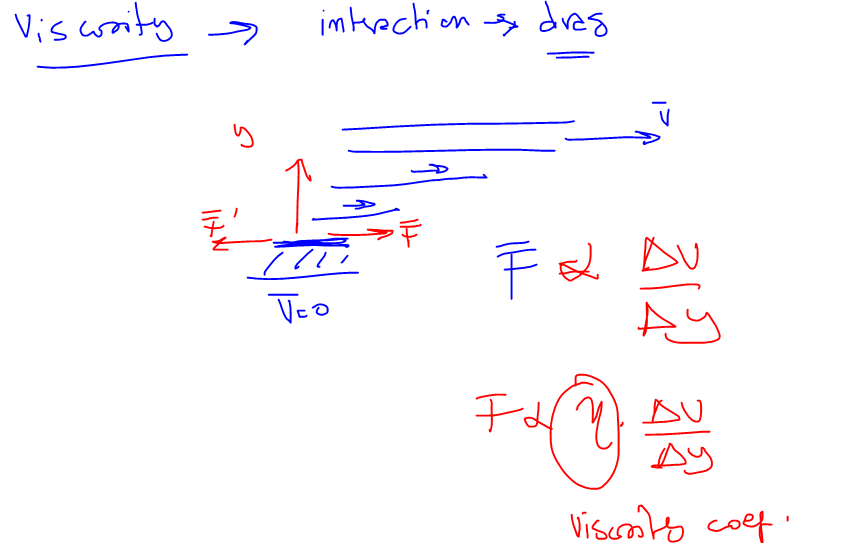 Viscosity → interaction → drag
V̅
y
F̅'
F̅
V̅=0
F̅ α ΔV/Δy
F α η · ΔV/Δy
Viscosity coef.